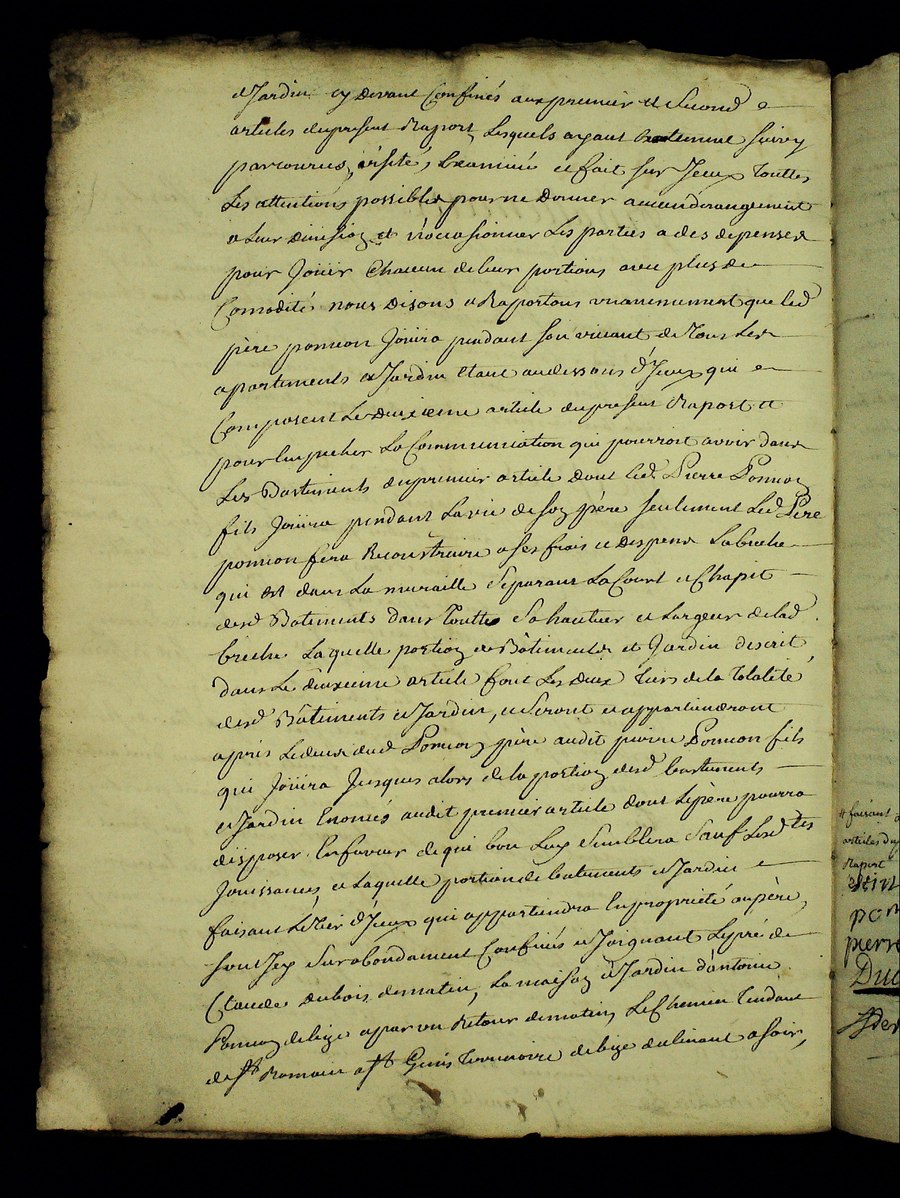 et Jardin cy devant Confinés aux premier et Second
articles du present Raport, Lesquels ayant suivy
parcourrus, visité, Examiné et fait sur Jceux Touttes
Les attentions possibles pour ne Donner aucun derangement
a Leur division et n'occasionner Les parties a des depenses
pour Jöüir Chacun de leur portions avec plus de
Comodité nous Disons et Raportons unanimement que led
père ponnion Jöüira pendant son vivant de Tous Les
apartements et Jardin Etant au dessous d'Jceux qui
Composent Le deuxieme article du present Raport et
pour Empecher La Communication qui pourroit avoir dans
Les Bastiments du premier article dont led Pierre Ponnion
fils Jöüira pendant La vie de son père seulement Led Père
ponnion fera Reconstruire a ses frais et depens La breche
qui est dans La muraille Separant La Court et Chapit
desd Batiments dans Toutte Sa hauteur et Largeur de lad
breche Laquelle portion de Bâtiments et Jardin descrit
dans Le deuxieme article font Les deux tiers de la Totalité
desd Bâtiments et Jardin, et Seront et appartiendront
après Le deces dud Ponnion père audit pierre Ponnion fils
qui Jöüira Jusques alors de la portion desd bastiments
et Jardin Enoncés audit premier article dont Lepère pourra
disposer En faveur de qui bon Luy Semblera Sauf Lesdtes
Jouissances et Laquelle portion de batiments et Jardin
faisant Le tier d'Jceux qui appartiendra En propriété au père,
sont Jcy Surabondament Confinés et Joignant Le pré de
Claude dubois de matin, La maison et Jardin d'antoine
Ponnion de bize a par un Retour de matin, Le Chemin Tendant
de st Romain a st Genis Terrenoire de bize declinant a soir,
# faisant
articles du
Raport
pon
pierre
Du